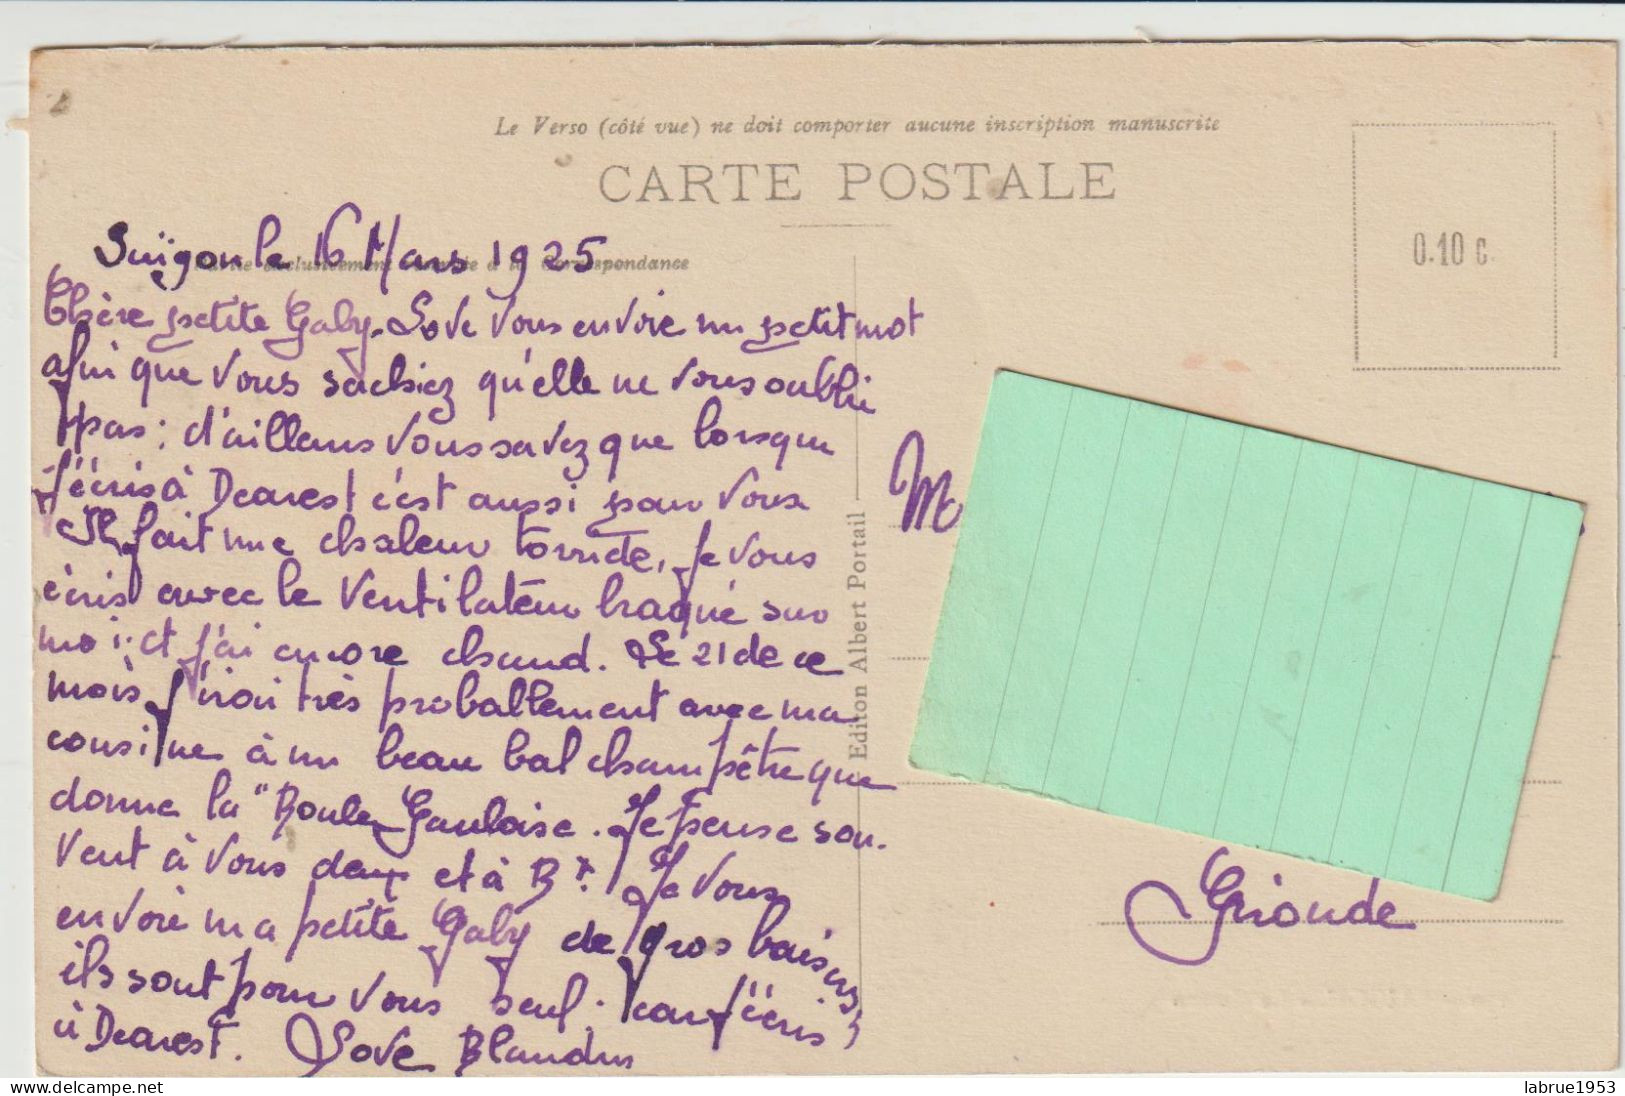 Le Verso (côté vue) ne doit comporter aucune inscription manuscrite
CARTE POSTALE
0.10 c.
Saïgon le 16 Mars 1925
Chère petite Gaby. Love vous envoie un petit mot
afin que vous sachiez qu'elle ne vous oublie
pas; d'ailleurs vous savez que lorsque
j'écris à Dearest c'est aussi pour vous
Il fait une chaleur torride, je vous
écris avec le ventilateur braqué sur
moi; et j'ai encore chaud. Le 21 de ce
mois j'irai très probablement avec ma
cousine à un beau bal champêtre que
donne la "Boule Gauloise. Je pense sou-
vent à vous deux et à Bx. Je vous
envoie ma petite Gaby de gros baisers
ils sont pour vous seul; car j'écris
à Dearest. Love
Edition Albert Portail
M
Gironde
delcampe.net
labrue1953